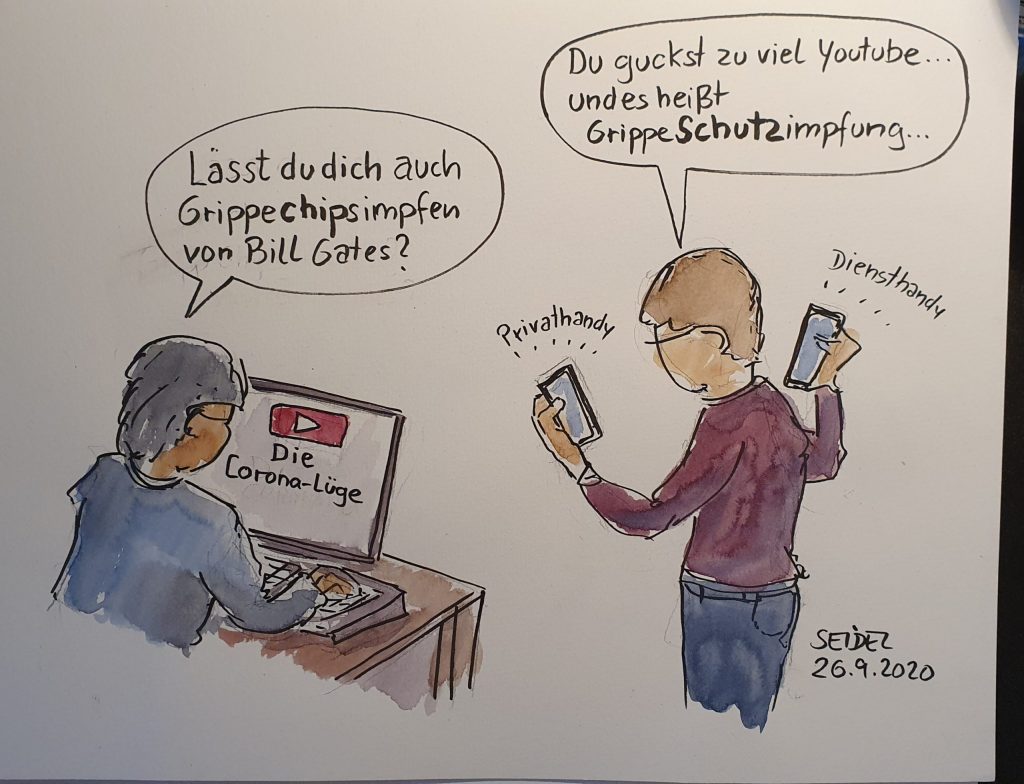 Du guckst zu viel Youtube...
und es heißt
GrippeSchutzimpfung...
Lässt du dich auch
Grippechipsimpfen
von Bill Gates?
Privathandy
Diensthandy
Die
Corona-Lüge
SEIDEL
26.9.2020